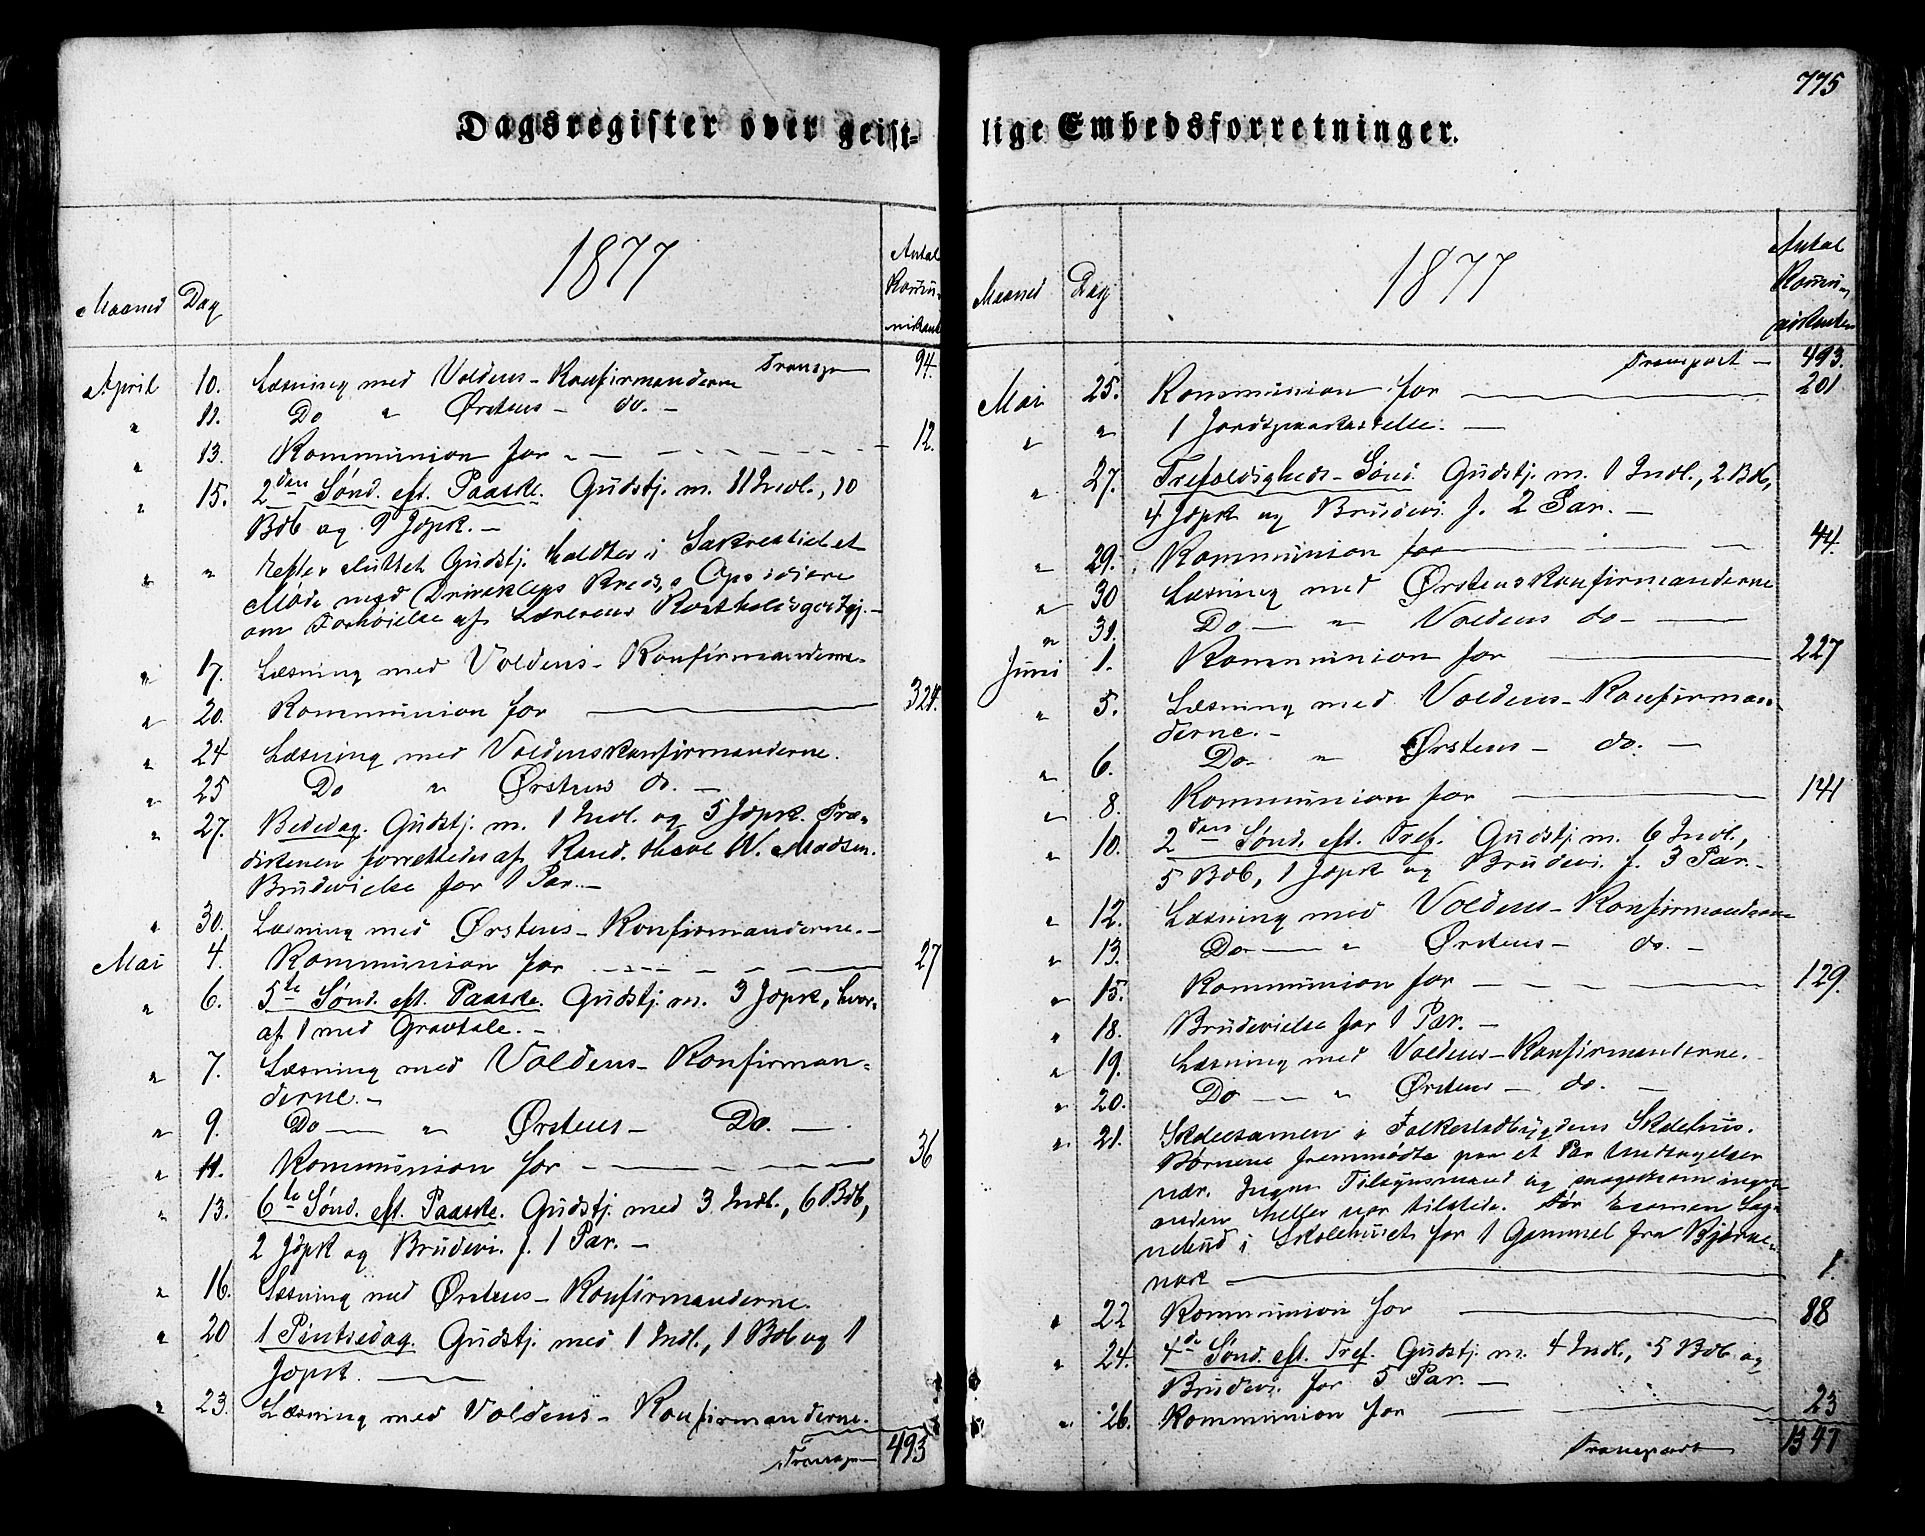 775
Dagsregister over geist-
lige Embedsforretninger.
Maaned Dag 1877 Antal Kommu-
nikant
Transp. 94.
April 10. Læsning med Voldens-Konfirmanderne
" 11. Do " Ørstens - do. -
" 13. Kommunion for - 12.
" 15. 2den Sønd. eft. Paaske. Gudstj. m. 11 Indl., 10
Bdb og 9 Jdpk. -
" " Efter sluttet Gudstj. holdtes i Sakrestiet et
Møde med Drivekleps Kreds's Opsidere
om Forhøielse af Lærerens Kostholdsgodtgj. -
" 17. Læsning med Voldens-Konfirmanderne.
" 20. Kommunion for 324.
" 24 Læsning med Voldenskonfirmanderne.
" 25 Do " Ørstens do. -
" 27. Bededag. Gudstj. m. 1 Indl. og 5 Jdpk. Præ-
dikenen forrettedes af Kand. theol W. Madsen.
Brudevielse for 1 Par. -
" 30. Læsning med Ørstens-Konfirmanderne. -
Mai 4. Kommunion for 27
" 6. 5te Sønd. eft. Paaske. Gudstj. m. 3 Jdpk, hvor-
af 1 med Gravtale. -
" 7. Læsning med Voldens-Konfirman-
derne. -
" 9. Do " Ørstens- Do. -
" 11. Kommunion for 36
" 13. 6te Sønd. eft. Paaske. Gudstj. med 3 Indl., 6 Bdb,
2 Jdpk og Brudevi. f. 1 Par. -
" 16. Læsning med Ørstens-Konfirmanderne.
" 20 1 Pintsedag. Gudstj. med 1 Indl., 1 Bdb og 1
Jdpk. -
" 23. Læsning med Voldens-Konfirmanderne.
Transp. 493
Maaned Dag 1877 Antal
Kommu-
nikanter
Transport - 493.
Mai 25. Kommunion for 201
" " 1 Jordspaakastelse. -
" 27. Trefoldigheds-Sønd. Gudstj. m. 1 Indl., 2 Bdb,
4 Jdpk og Brudevi. f. 2 Par. -
" 29. Kommunion for 44.
" 30 Læsning med Ørstenskonfirmanderne
" 31. Do - " Voldens do -
Juni 1. Kommunion for 227
" 5. Læsning med Voldens-Konfirman-
derne. -
" 6. Do. " Ørstens - do. -
" 8. Kommunion for 141
" 10. 2den Sønd. eft. Tref. Gudstj. m. 6 Indl.,
5 Bdb, 1 Jdpk og Brudevi. f. 3 Par. -
" 12. Læsning med Voldens-Konfirmanderne
" 13. Do - " Ørstens - do. -
" 15. Kommunion for 129.
" 18. Brudevielse for 1 Par. -
" 19. Læsning med Voldens-Konfirmanderne.
" 20. Do - " Ørstens - do. -
" 21. Skoleexamen i Folkestadbygdens Skolehus.
Børnene fremmødte paa et Par Undtagelser
nær. Ingen Tilsynsmand og ingen
anden heller var tilstede. Før Examen Sog-
nebud i Skolehuset for 1 Gammel fra Bjørne-
nak 1.
" 22 Kommunion for 88
" 24. 4de Sønd. eft. Tref. Gudstj. m. 4 Indl., 5 Bdb og
Brudevi. for 5 Par. -
" 26. Kommunion for 23
Transport 1347